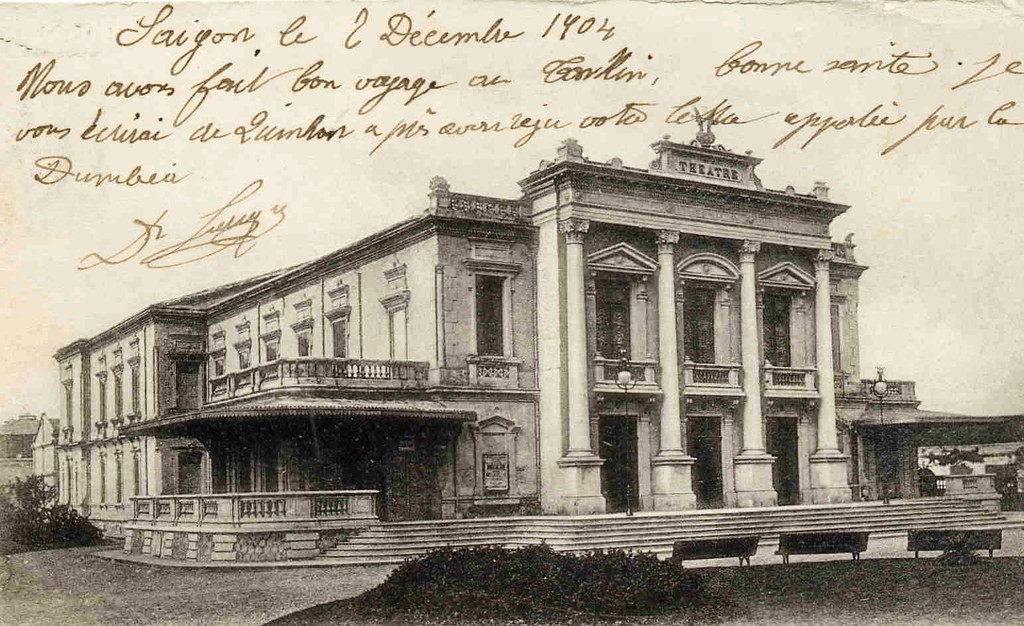 Saigon le 2 Décembre 1904
Nous avons fait bon voyage au bonne santé. Je
vous écrirai de Quinhon a pris avoir reçu votre lettre apportée par la
Dumbéa
Dr
THEATRE